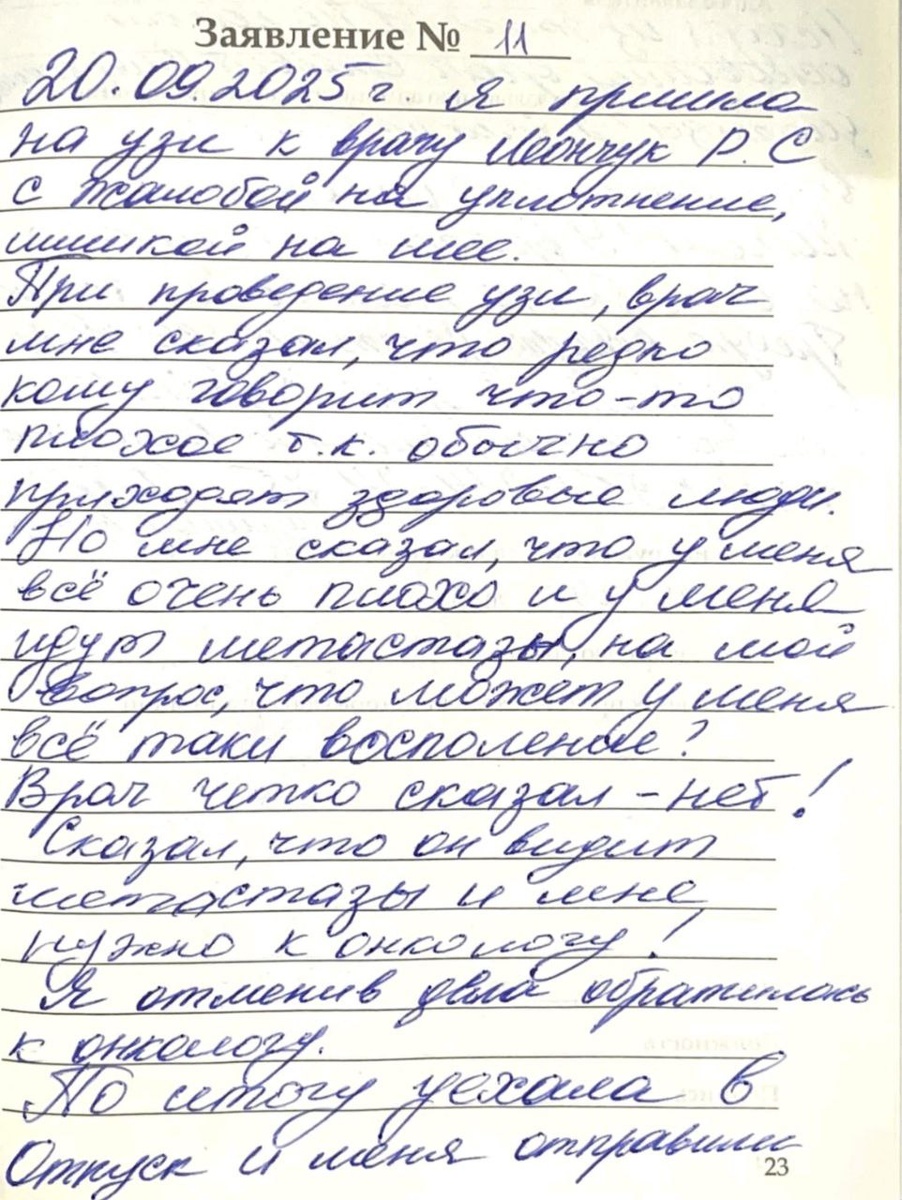 Заявление № 11
20.09.2025 г. я пришла
на узи к врачу Леончук Р. С
с жалобой на уплотнение,
шишкой на шее.
При проведение узи, врач
мне сказал, что редко
кому говорит что-то
плохое т.к. обычно
приходят здоровые люди.
Но мне сказал, что у меня
всё очень плохо и у меня
идут метастазы, на мой
вопрос, что может у меня
всё таки восполение?
Врач четко сказал - нет!
Сказал, что он видит
метастазы и мне
нужно к онкологу!
Я отменив дела обратилась
к онкологу.
По итогу уехала в
Отпуск и меня отправили
23